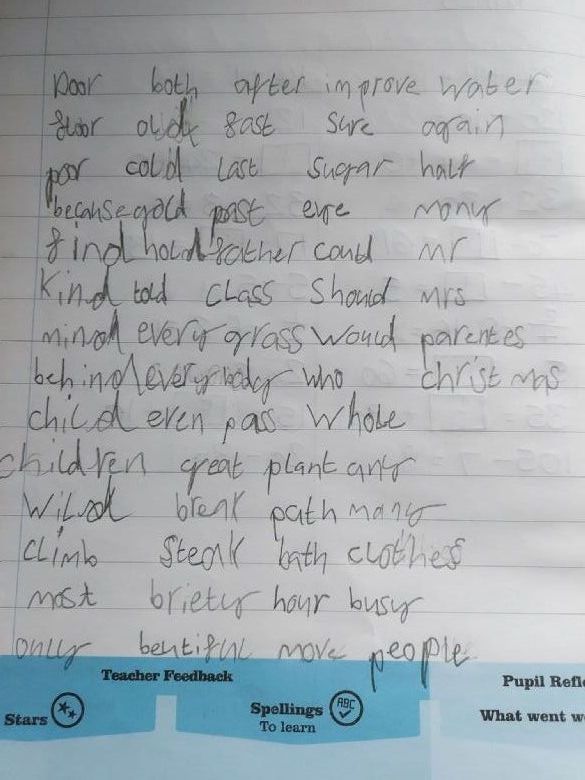 Door both after improve water
floor old fast sure again
poor cold last sugar half
because gold past eye mony
find hold father could Mr
Kind told class should Mrs
mind every grass would parentes
behind everybody who christmas
child even pass whole
children great plant any
Wild break path many
climb Steak bath clothess
most briety hour busy
only beutiful move people
Teacher Feedback
Pupil Refle
Stars ABC Spellings What went we
To learn